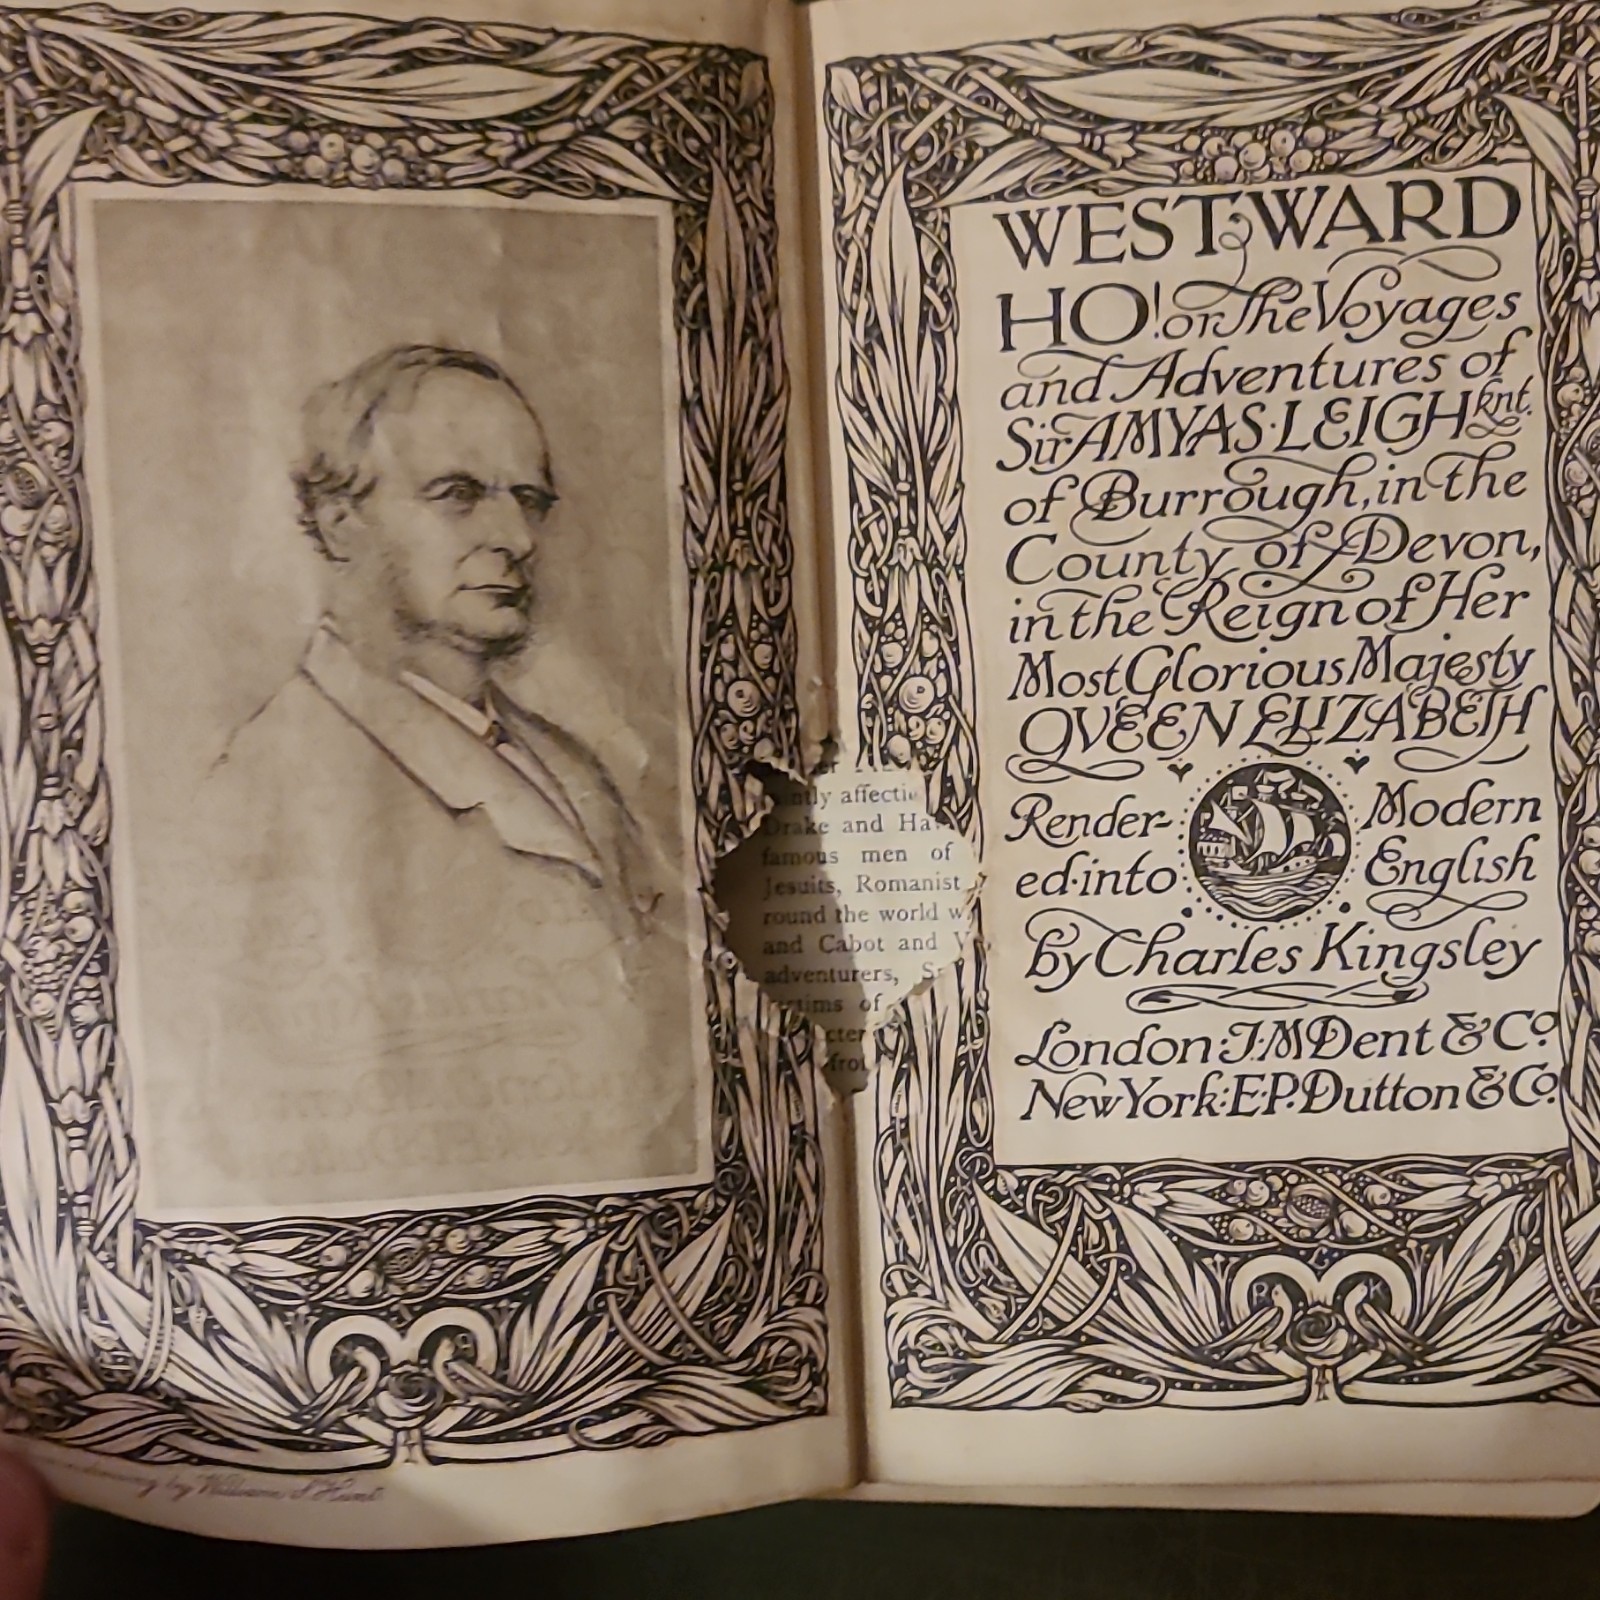 drawing by William S Hunt
ntly affectio
Drake and Ha
famous men of
Jesuits, Romanist
round the world w
and Cabot and V
adventurers, S
ctims of
cter
fro
WESTWARD
HO! or The Voyages
and Adventures of
Sir AMYAS·LEIGH knt.
of Burrough, in the
County of Devon,
in the Reign of Her
Most Glorious Majesty
QVEEN ELIZABETH
Render- Modern
ed·into English
by Charles Kingsley
London: J·M Dent & Co.
New York: E·P. Dutton & Co.
G
R K